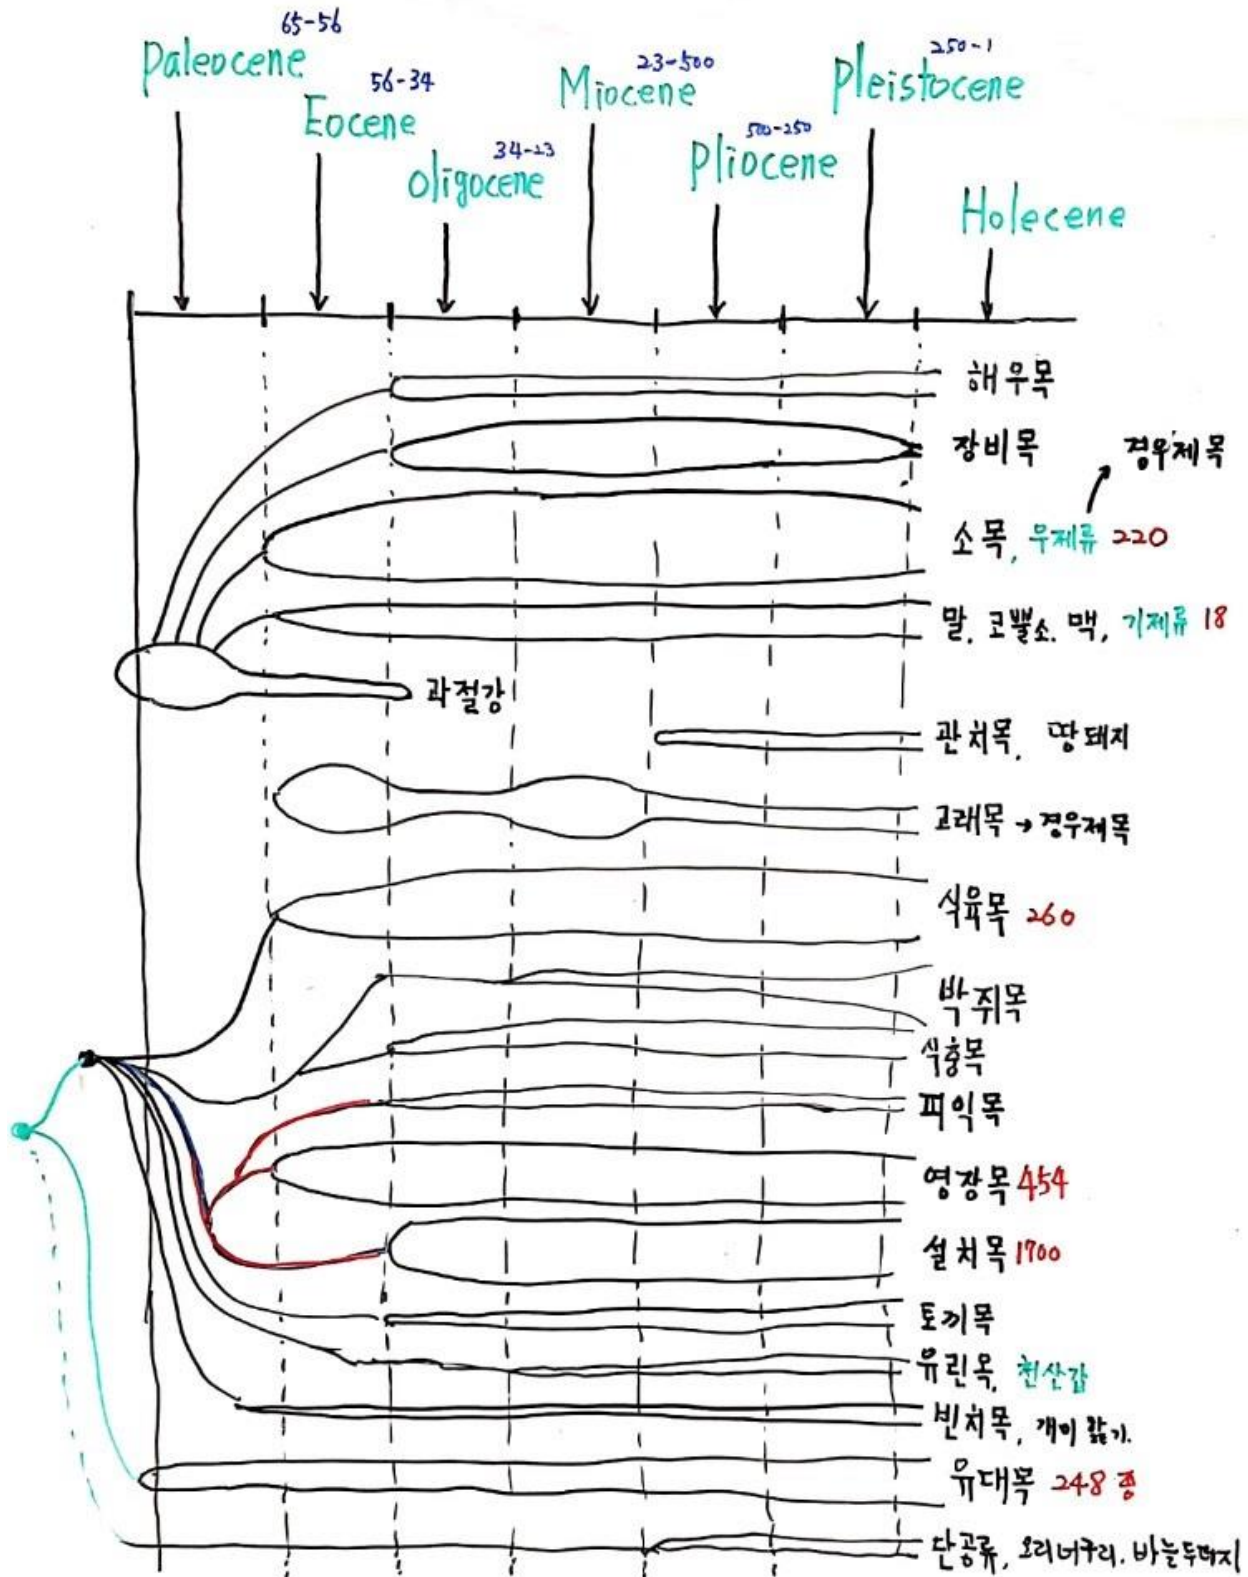 65-56
Paleocene
56-34
Eocene
34-23
oligocene
23-500
Miocene
500-250
Pliocene
250-1
Pleistocene
Holecene
해우목
장비목
경우제목
소목, 우제류 220
말, 코뿔소. 맥, 기제류 18
과절강
관치목, 땅돼지
고래목 → 경우제목
식육목 260
박쥐목
식충목
피익목
영장목 454
설치목 1700
토끼목
유린목, 천산갑
빈치목, 개미핥기.
유대목 248종
단공류, 오리너구리. 바늘두더지